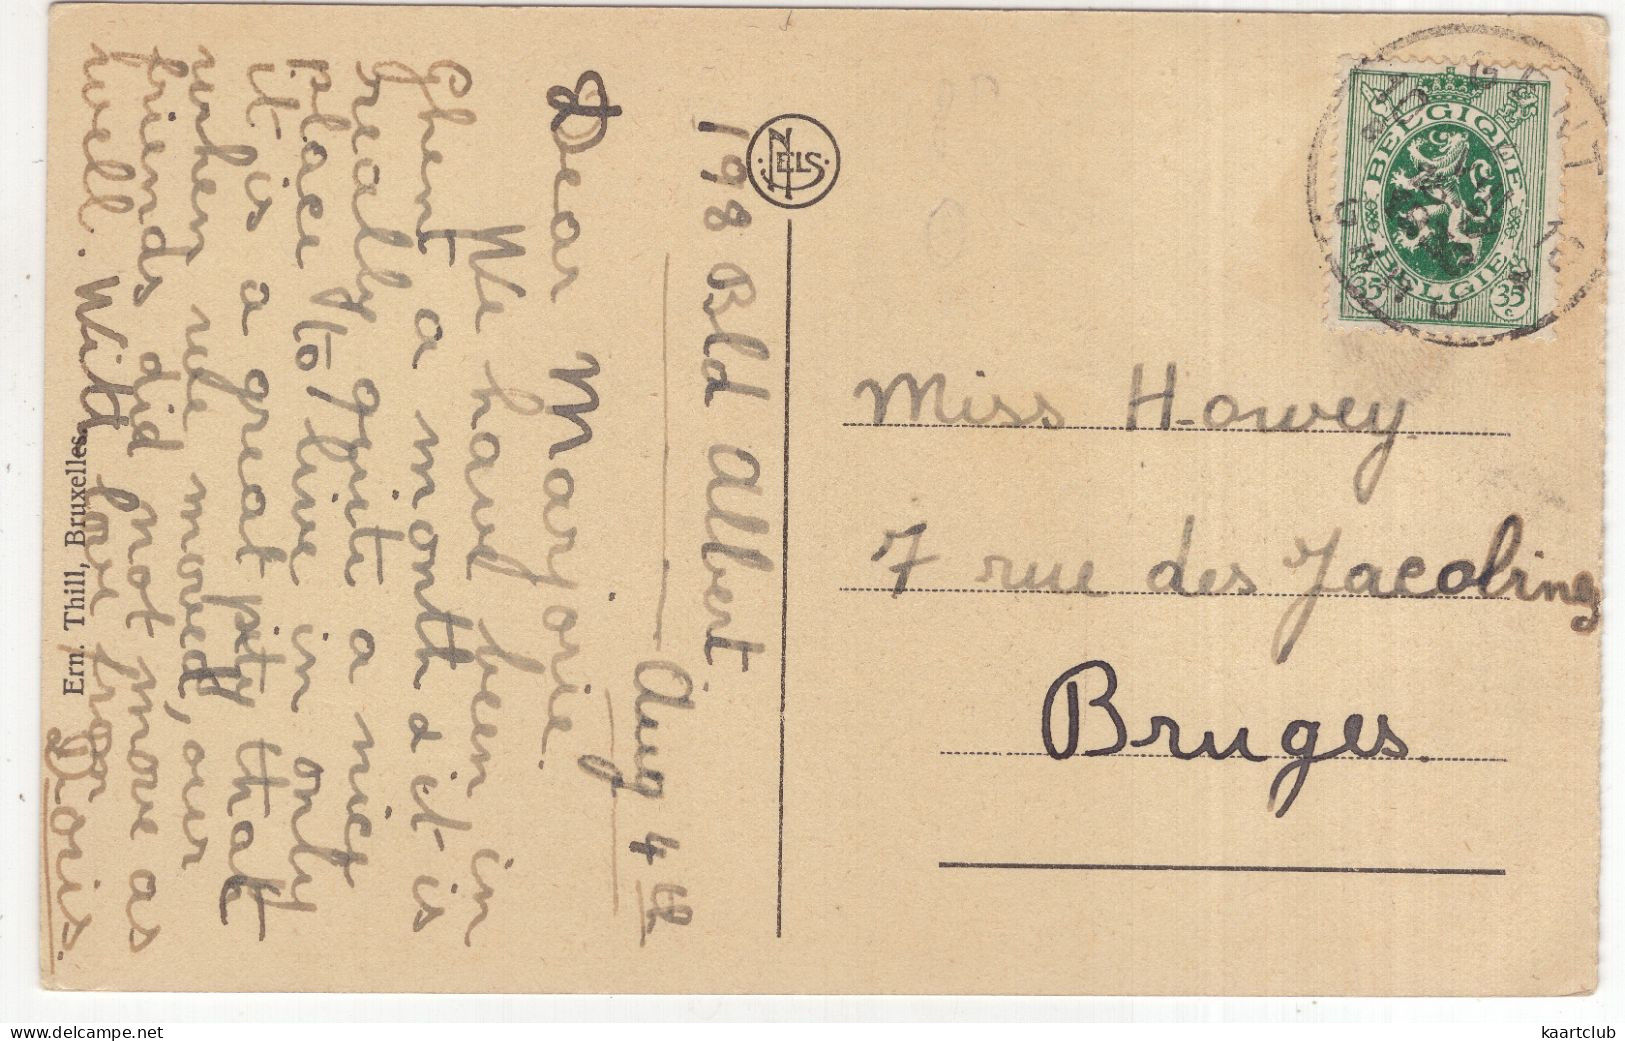 198 Bld Albert
Aug 4th
Dear Marjorie.
We have been in
Ghent a month & it is
really quite a nice
place to live in only
it is a great pity that
when we moved, our
friends did not move as
well. With love from
Doris.
Ern. Thill, Bruxelles.
NELS
BELGIQUE
BELGIE
35c
35c
GENT
GAND
Miss Howey
7 rue des Jacobines
Bruges.
www.delcampe.net
kaartclub